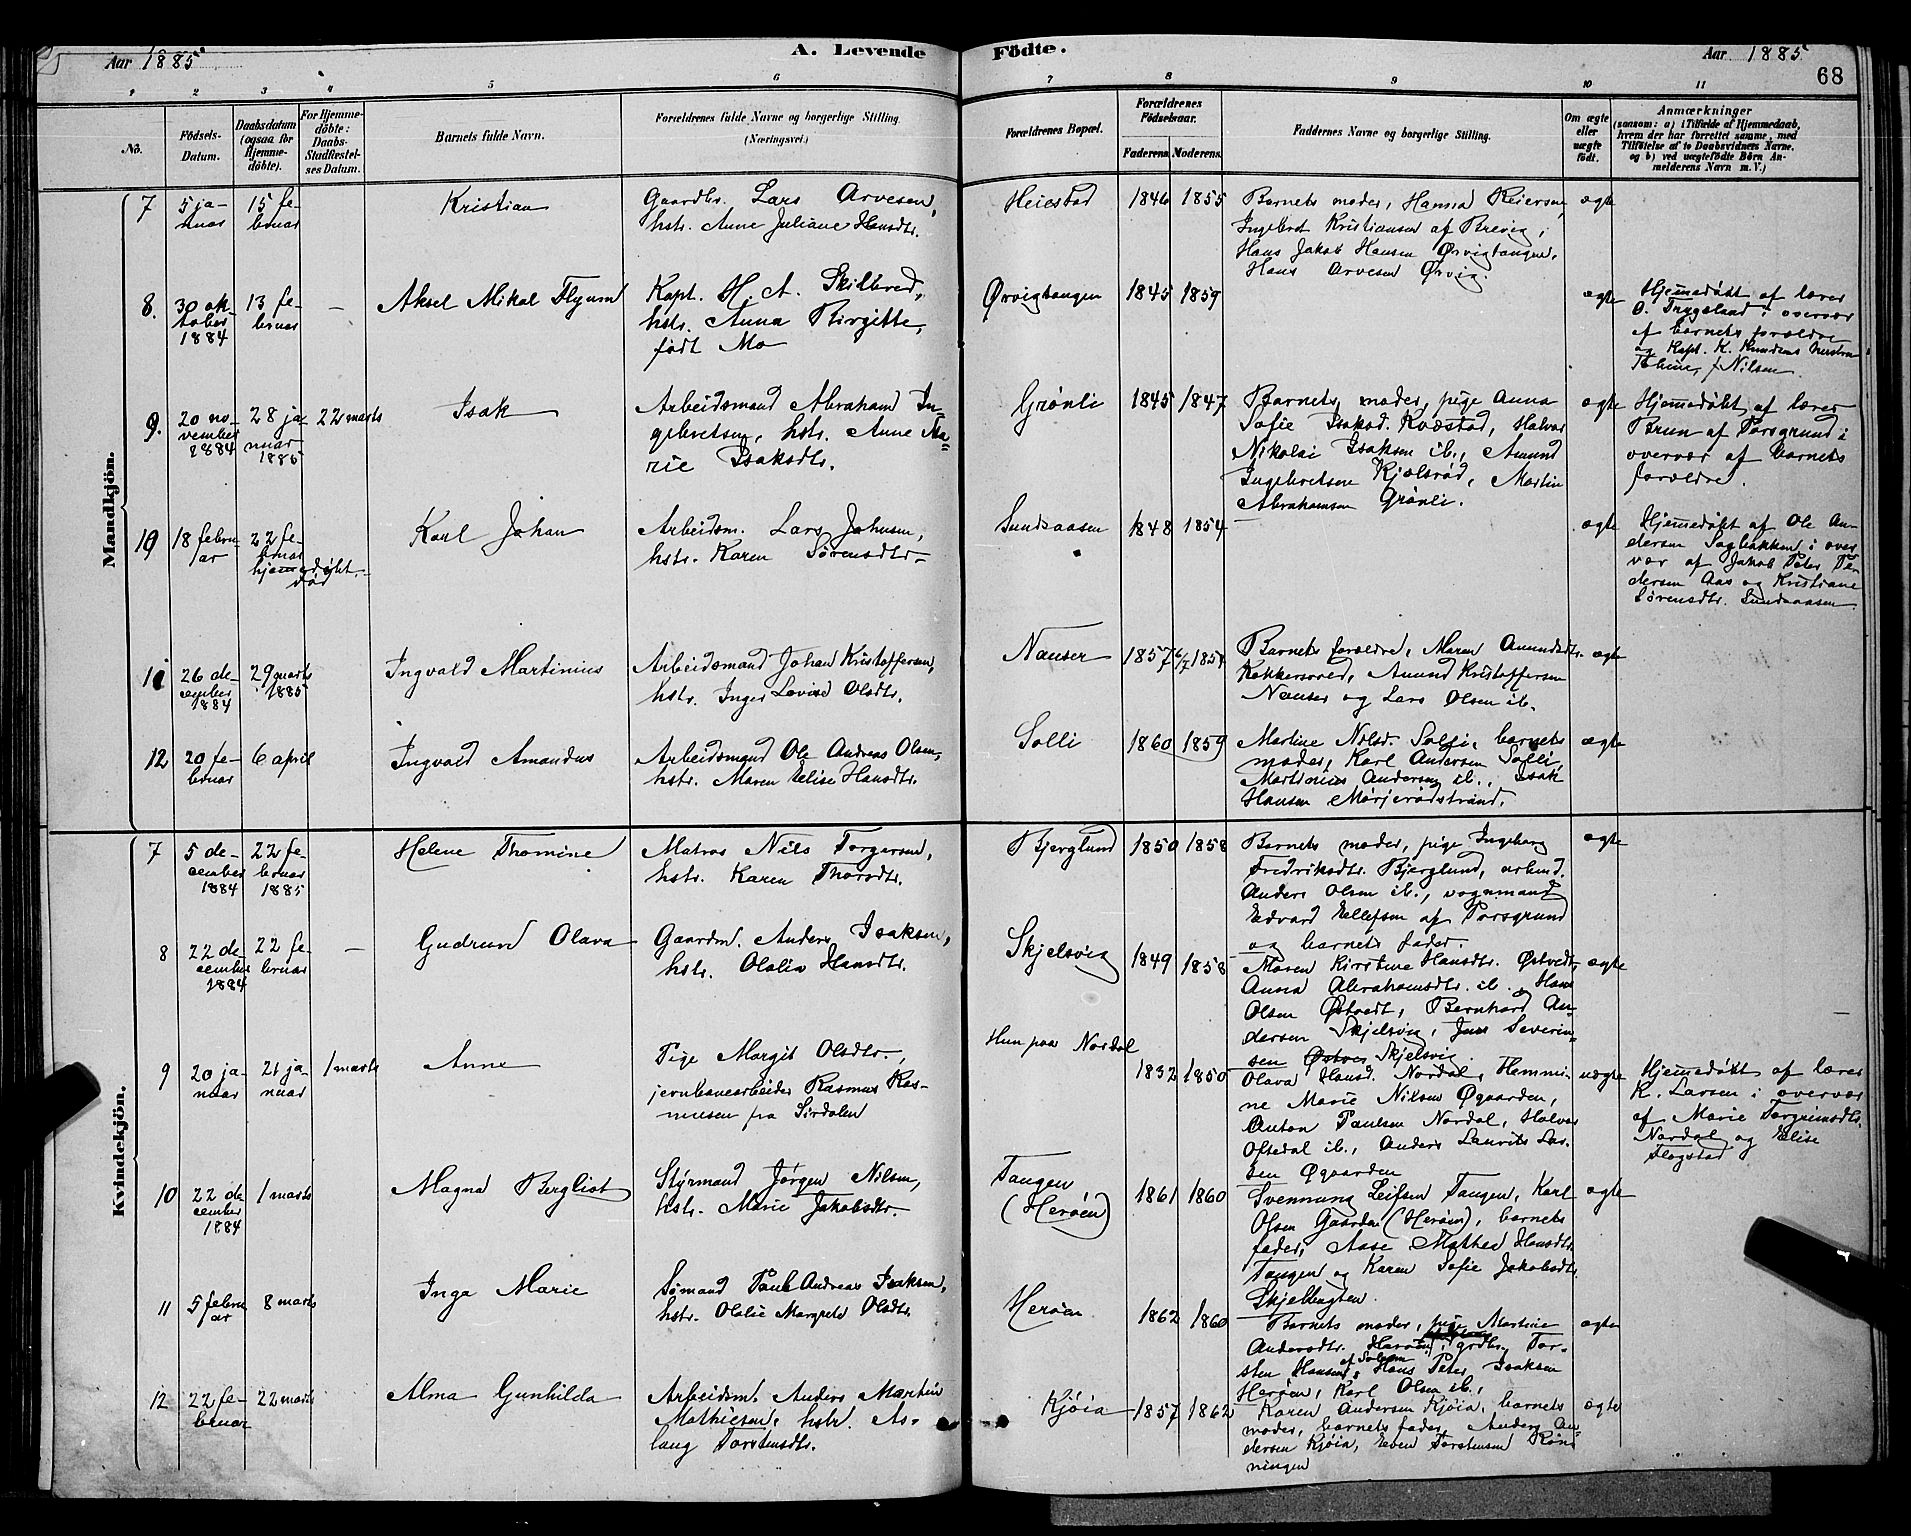 Aar 1885
A. Levende
Födte.
Aar 1885
68
1 2 3 4 5 6 7 8 9 10 11
No.
Födsels-
Datum.
Daabsdatum
(ogsaa for
Hjemme-
döbte).
For Hjemme-
döbte:
Daabs-
Stadfæstel-
ses Datum.
Barnets fulde Navn.
Forældrenes fulde Navne og borgerlige Stilling
(Næringsvei.)
Forældrenes Bopæl.
Forældrenes
Födselsaar.
Faderens.
Moderens.
Faddernes Navne og borgerlige Stilling.
Om ægte
eller
uægte
födt.
Anmærkninger
(saasom: a) i Tilfælde af Hjemmedaab,
hvem der har forrettet samme, med
Tilföielse af to Daabsvidners Navne.
og b) ved uægtefödte Börn An-
melderens Navn m. V.)
Mandkjön.
7
5 ja-
nuar
15 fe-
bruar
Kristian
Gaardbr. Lars Arvesen,
hstr. Anne Juliane Hansdtr.
Heiestad
1846
1855
Barnets moder, Hanna Reiersen,
Ingebret Kristiansen af Brevig,
Hans Jakob Hansen Ørvigtangen,
Hans Arvesen Ørvig.
ægte
8.
30 ok-
tober
1884
13 fe-
bruar
—
Aksel Mikal Flyum
Kapt. H. A. Skilbred,
hstr. Anna Birgitte,
født Mo
Ørvigtangen
1845
1859
ægte
Hjemmedøbt af lærer
O. Trygsland i overvær
af barnets forældre
og Kapt. K. Knudsens hustru
f. Nilsen.
9.
20 no-
vember
1884
28 ja-
nuar
1885
22 marts
Isak
Arbeidsmand Abraham In-
gebretsen, hstr. Anne Ma-
rie Isaksdtr.
Grønli
1845
1847
Barnets moder, pige Anna
Sofie Isaksd. Kvæstad, Halvor
Nikolai Isaksen ib., Amund
Ingebretsen Kjølsrød, Martin
Abrahamsen Grønli.
ægte
Hjemmedøbt af lærer
Brun af Porsgrund i
overvær af barnets
forældre.
10
18 febru-
ar
22 fe-
bruar
hjemmedøbt.
død
Karl Johan
Arbeidsm. Lars Johnsen,
hstr. Karen Sørensdtr.
Sundsaasen
1848
1854
—
ægte
Hjemmedøbt af Ole An-
dersen Sagbakken i over-
vær af Jakob Peter Pe-
dersen Aas og Kristiane
Sørensdtr. Sundsaasen
11
26 de-
cember
1884
29 marts
1885
Ingvald Martinius
Arbeidsmand Johan Kristoffersen,
hstr. Inger Lovise Olsdtr.
Nauser
1857
6/7 1854
Barnets forældre, Maren Amundsdtr.
Kokkersvold, Amund Kristoffersen
Nauser og Lars Olsen ib.
ægte
12
20 fe-
bruar
6 april
Ingvald Amandus
Arbeidsmand Ole Andreas Olsen,
hstr. Maren Elise Hansdtr.
Solli
1860
1859
Martine Nilsd. Solli, barnets
moder, Karl Andersen Solli,
Martinius Andersen ib., Isak
Hansen Mørjerødstrand.
ægte
Kvindekjön.
7
5 de-
cember
1884
22 fe-
bruar
1885
Helene Thomine
Matros Nils Torgersen,
hstr. Karen Thorsdtr.
Bjerglund
1850
1858
Barnets moder, pige Ingeborg
Fredriksdtr. Bjerglund, arbmd.
Anders Olsen ib., vognmand
Edvard Ellefsen af Porsgrund
og barnets fader.
ægte
8
22 de-
cember
1884
22 fe-
bruar
—
Gudrun Olava
Gaardm. Anders Isaksen,
hstr. Olalia Hansdtr.
Skjelsvig
1849
1858
Maren Kirstine Hansdtr. Østvedt,
Anna Abrahamsdtr. ib., Hans
Olsen Østvedt, Bernhard An-
dersen Skjelsvig, Jens Severin-
sen Skjelsvig.
ægte
9
20 ja-
nuar
21 ja-
nuar
1 marts
Anne
Pige Margit Olsdtr.,
jernbanearbeider Rasmus Ras-
mussen paa Sirdalen
Hun paa Nordal
1832
1850
Olava Hansd. Nordal, Hemmi-
ne Marie Nilsen Øgaarden,
Anton Paulsen Nordal, Halvor
Oftedal ib., Anders Laurits Lar-
sen Øgaarden
uægte
Hjemmedøbt af lærer
K. Larsen i overvær
af Marie Torgrimsdtr.
Nordal og Elise
Flogstad
10
22 de-
cember
1884
1 marts
Magna Bergliot
Styrmand Jørgen Nilsen,
hstr. Marie Jakobsdtr.
Tangen
(Herøen)
1861
1860
Svennung Leifsen Tangen, Karl
Olsen Gaarden (Herøen), barnets
fader, Aase Mathea Hansdtr.
Tangen og Karen Sofie Jakobsdtr.
Skjelbugten.
ægte
11
5 febru-
ar
8 marts
Inga Marie
Sømand Paul Andreas Isaksen,
hstr. Olalie Margrete Olsdtr.
Herøen
1862
1860
Barnets moder, pige Martine
Andersdtr. Herøen, grdbr. Tor-
sten Hansen af Solum, Hans Peter Isaksen
Herøen, Karl Olsen ib.,
ægte
12
22 fe-
bruar
22 marts
Alma Gunhilda
Arbeidsm. Anders Martin
Mathiesen, hstr. As-
laug Torstensdtr.
Kjøia
1857
1862
Karen Andersen Kjøia, barnets
moder, barnets fader, Anders An-
dersen Kjøia, Even Torstensen Røn-
ningen
ægte